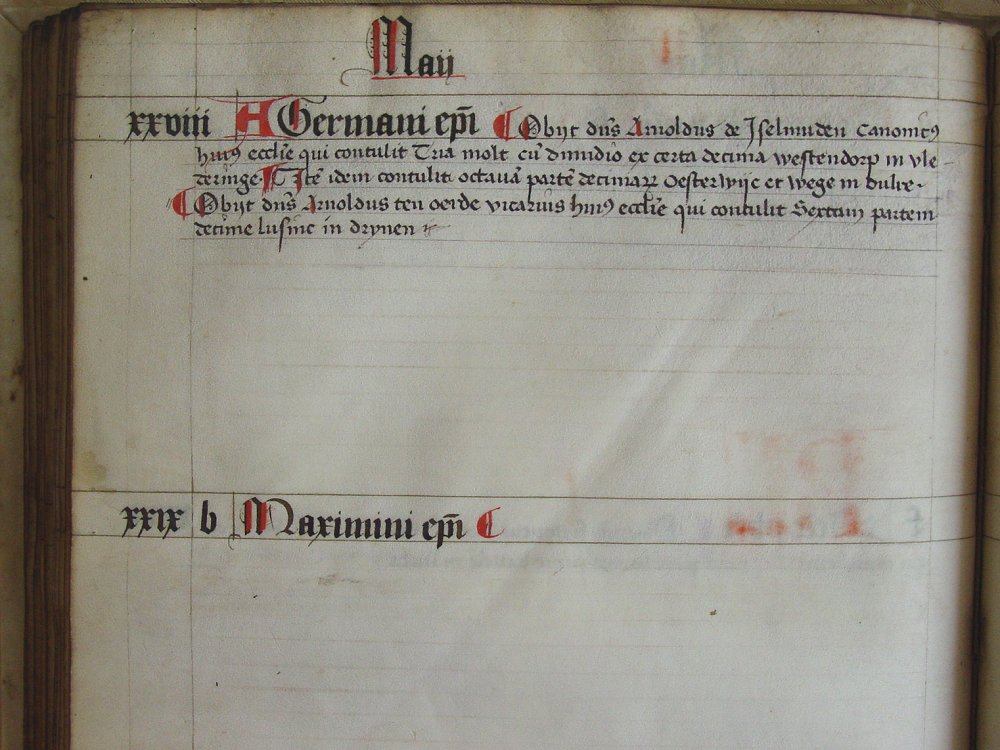 Maij
xxviii A Germani ep̄i ¶ Obijt dn̄s Arnoldus de Jselmuden Canonicꝯ
huiꝯ eccl̄ie qui contulit Tria molt cū dimidio ex certa decima westendorp in vle
deringe ¶ Itē idem contulit octauā partē decimaꝝ Oesterwijc et wege in
¶ Obijt dn̄s Arnoldus ten oerde vicarius huiꝯ eccl̄ie qui contulit Sextam partem
decime in drynen
xxix b Maximini ep̄i ¶